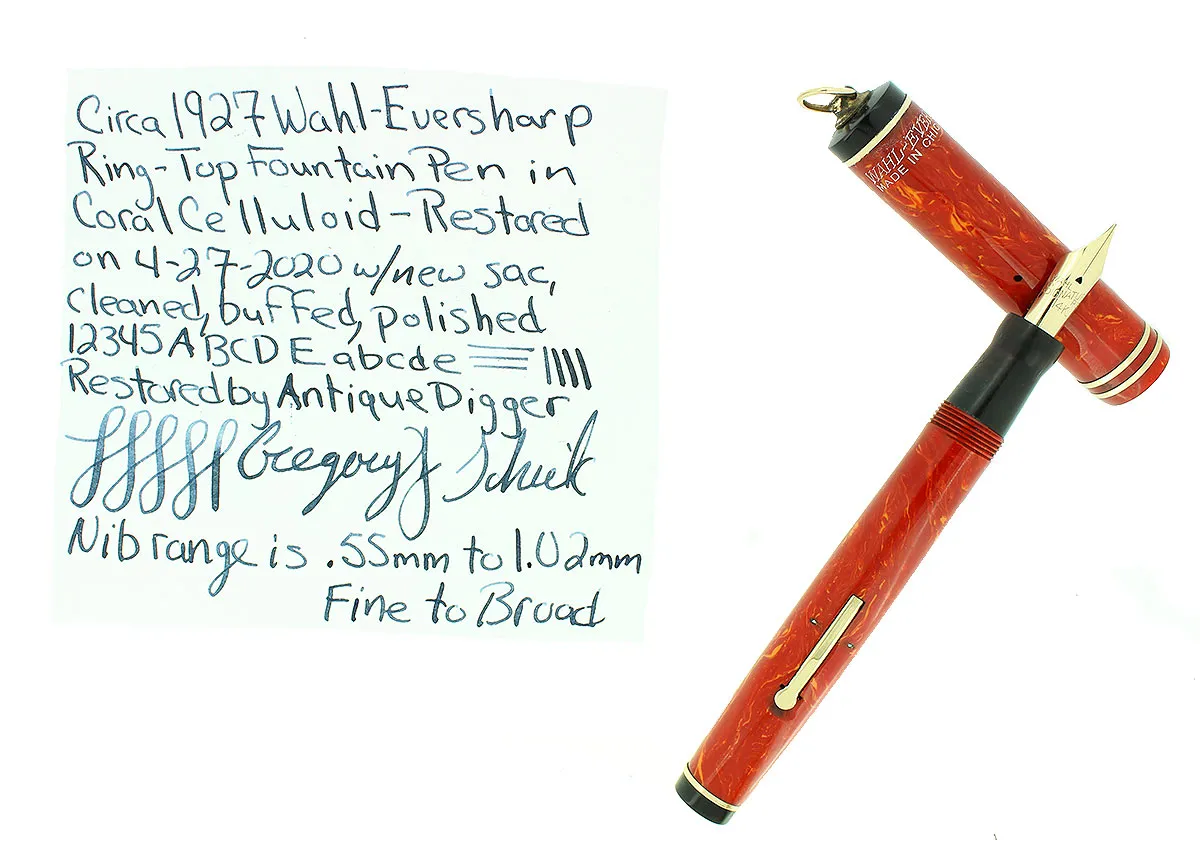 Circa 1927 Wahl-Eversharp
Ring-Top Fountain Pen in
Coral Celluloid - Restored
on 4-27-2020 w/new sac,
cleaned, buffed, polished
12345 ABCDE abcde
Restored by Antique Digger
Gregory J
Nib range is .55mm to 1.02mm
Fine to Broad
WAHL-EVE
MADE IN CHIC
14K